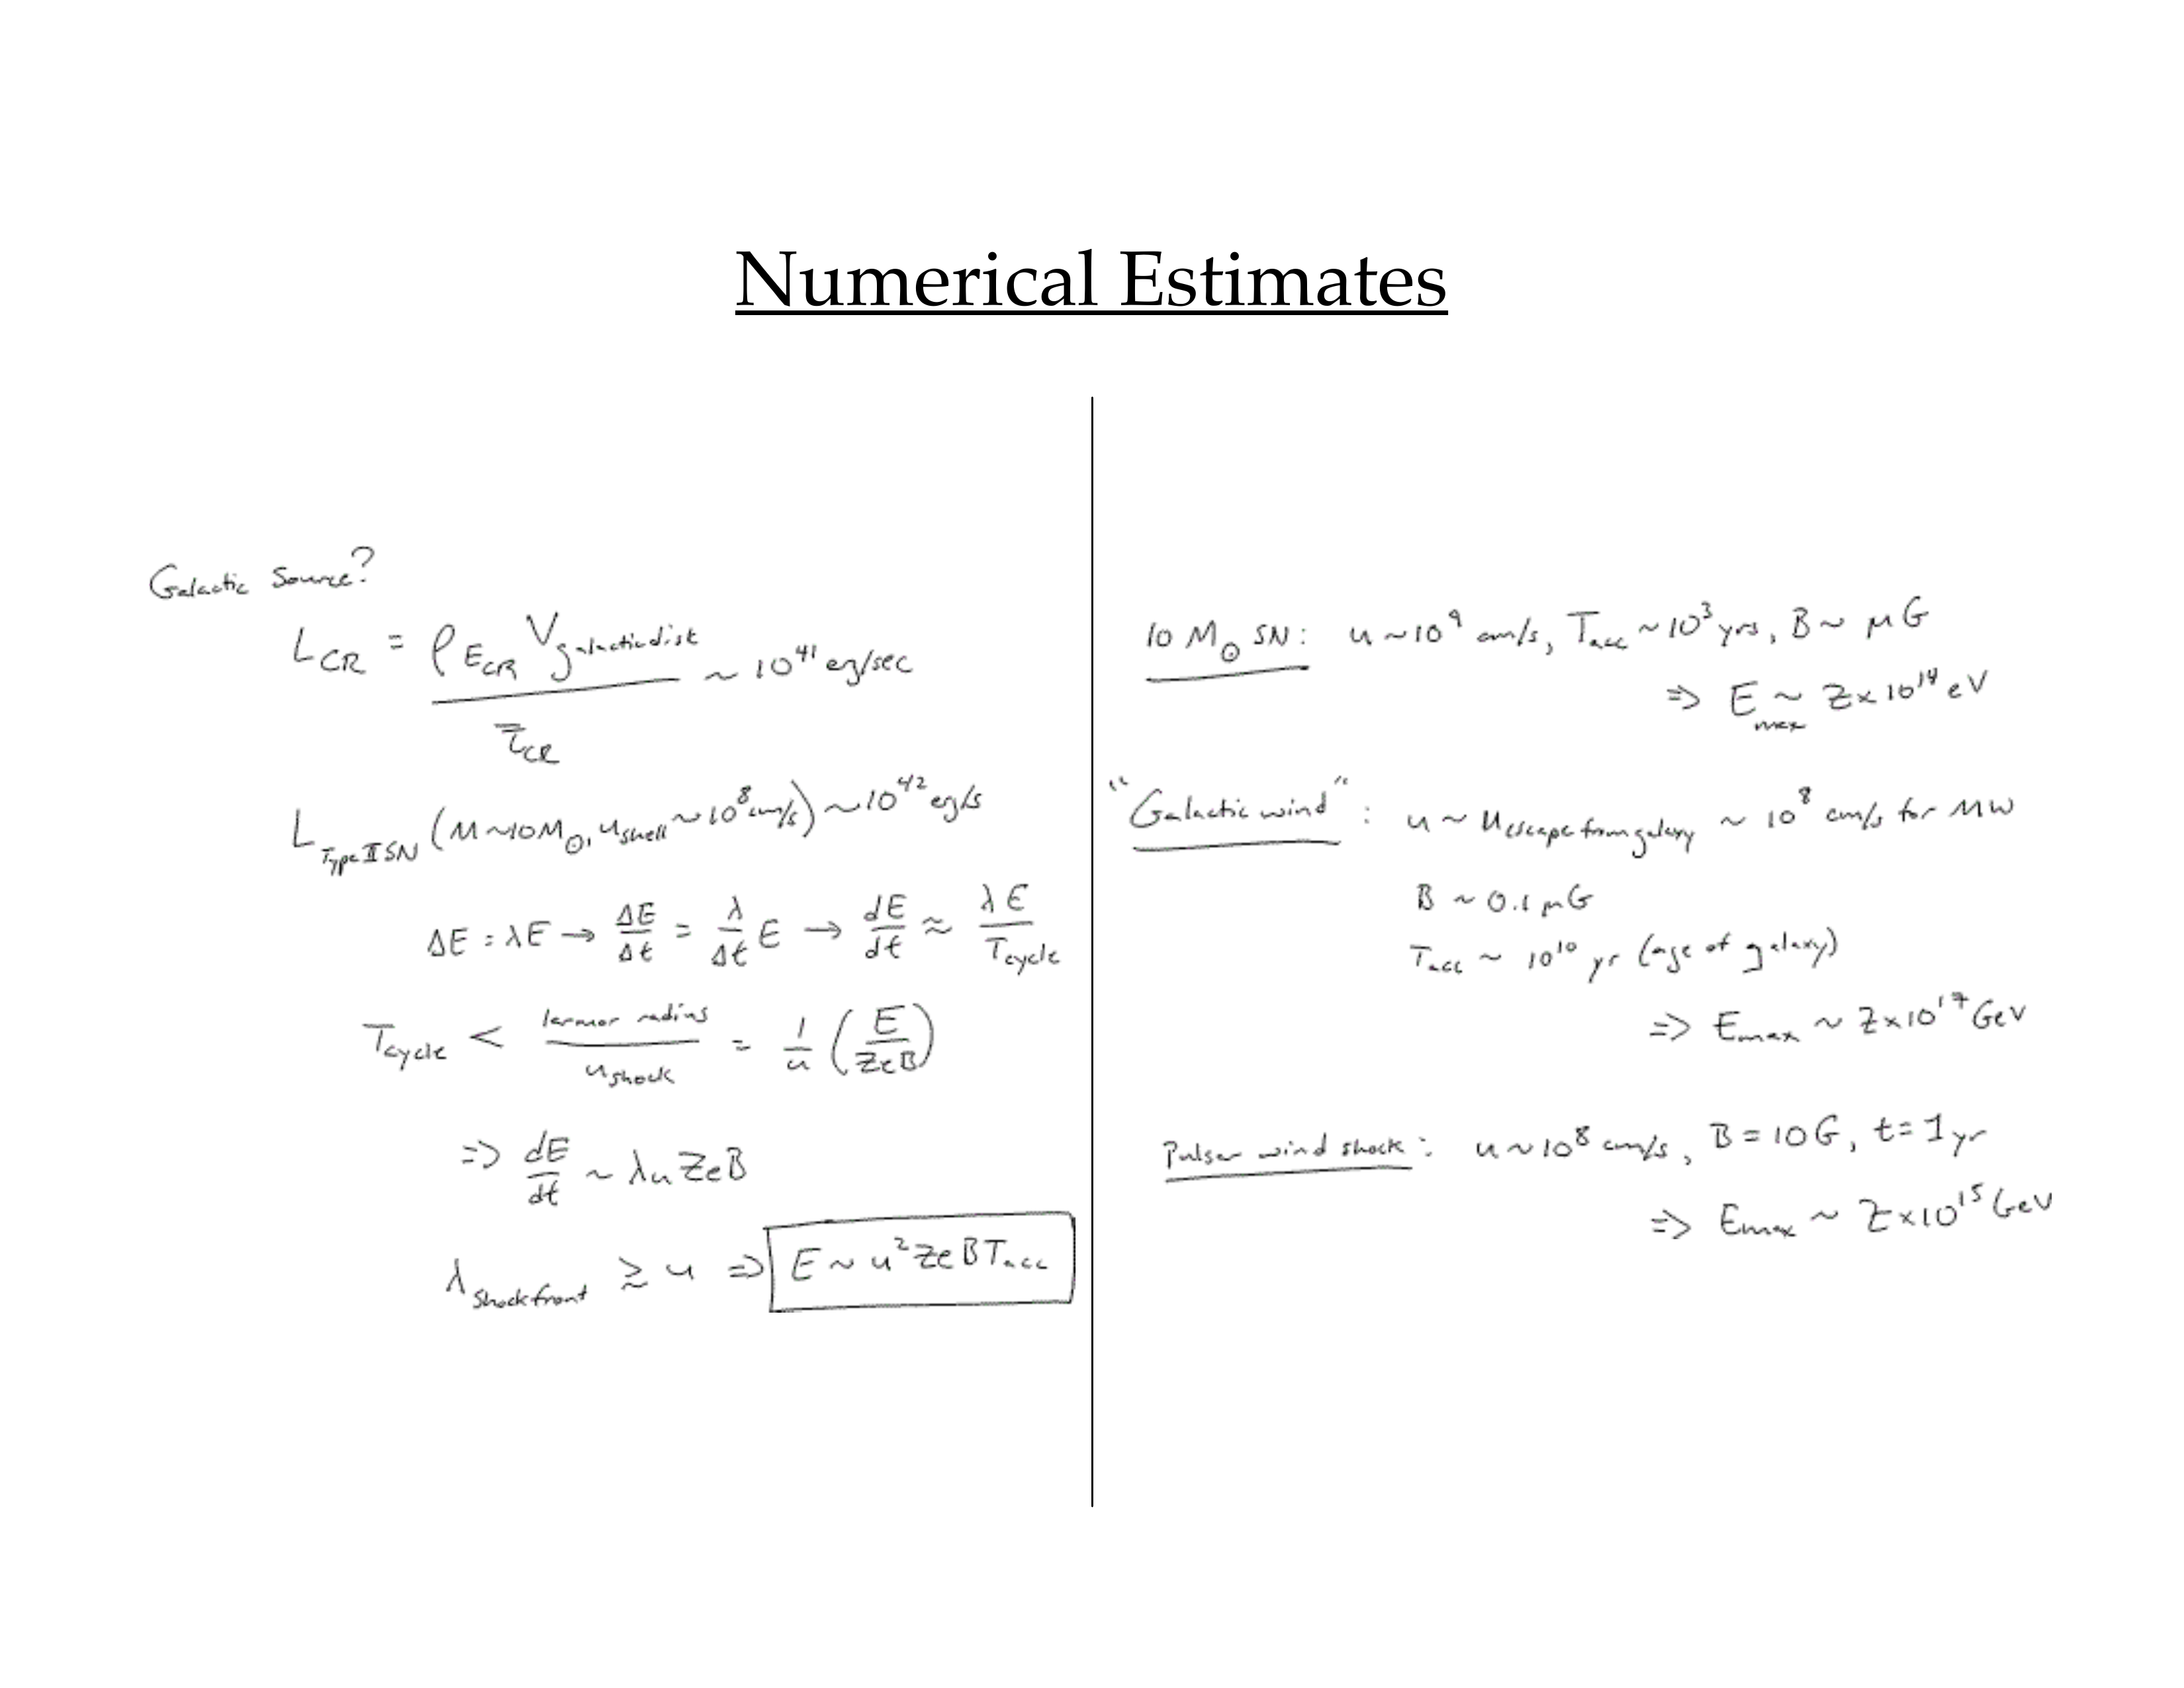 Numerical Estimates
Galactic Source?
L_CR = ρ_E_CR V_galactic disk / τ_CR ~ 10^41 erg/sec
L_Type II SN (M~10M_⊙, u_shell ~10^8 cm/s) ~10^42 erg/s
ΔE = λE → ΔE/Δt = λ/Δt E → dE/dt ≈ λE/T_cycle
T_cycle < larmor radius/u_shock = 1/u (E/ZeB)
=> dE/dt ~ λuZeB
λ_shockfront ≳ u => E ~ u^2 ZeBT_acc
10 M_⊙ SN: u ~10^9 cm/s, T_acc ~10^3 yrs, B ~ μG
=> E_max ~ Z×10^14 eV
"Galactic wind": u ~ u_escape from galaxy ~ 10^8 cm/s for MW
B ~ 0.1 μG
T_acc ~ 10^10 yr (age of galaxy)
=> E_max ~ Z×10^17 GeV
Pulsar wind shock: u~10^8 cm/s, B = 10G, t = 1yr
=> E_max ~ Z×10^15 GeV